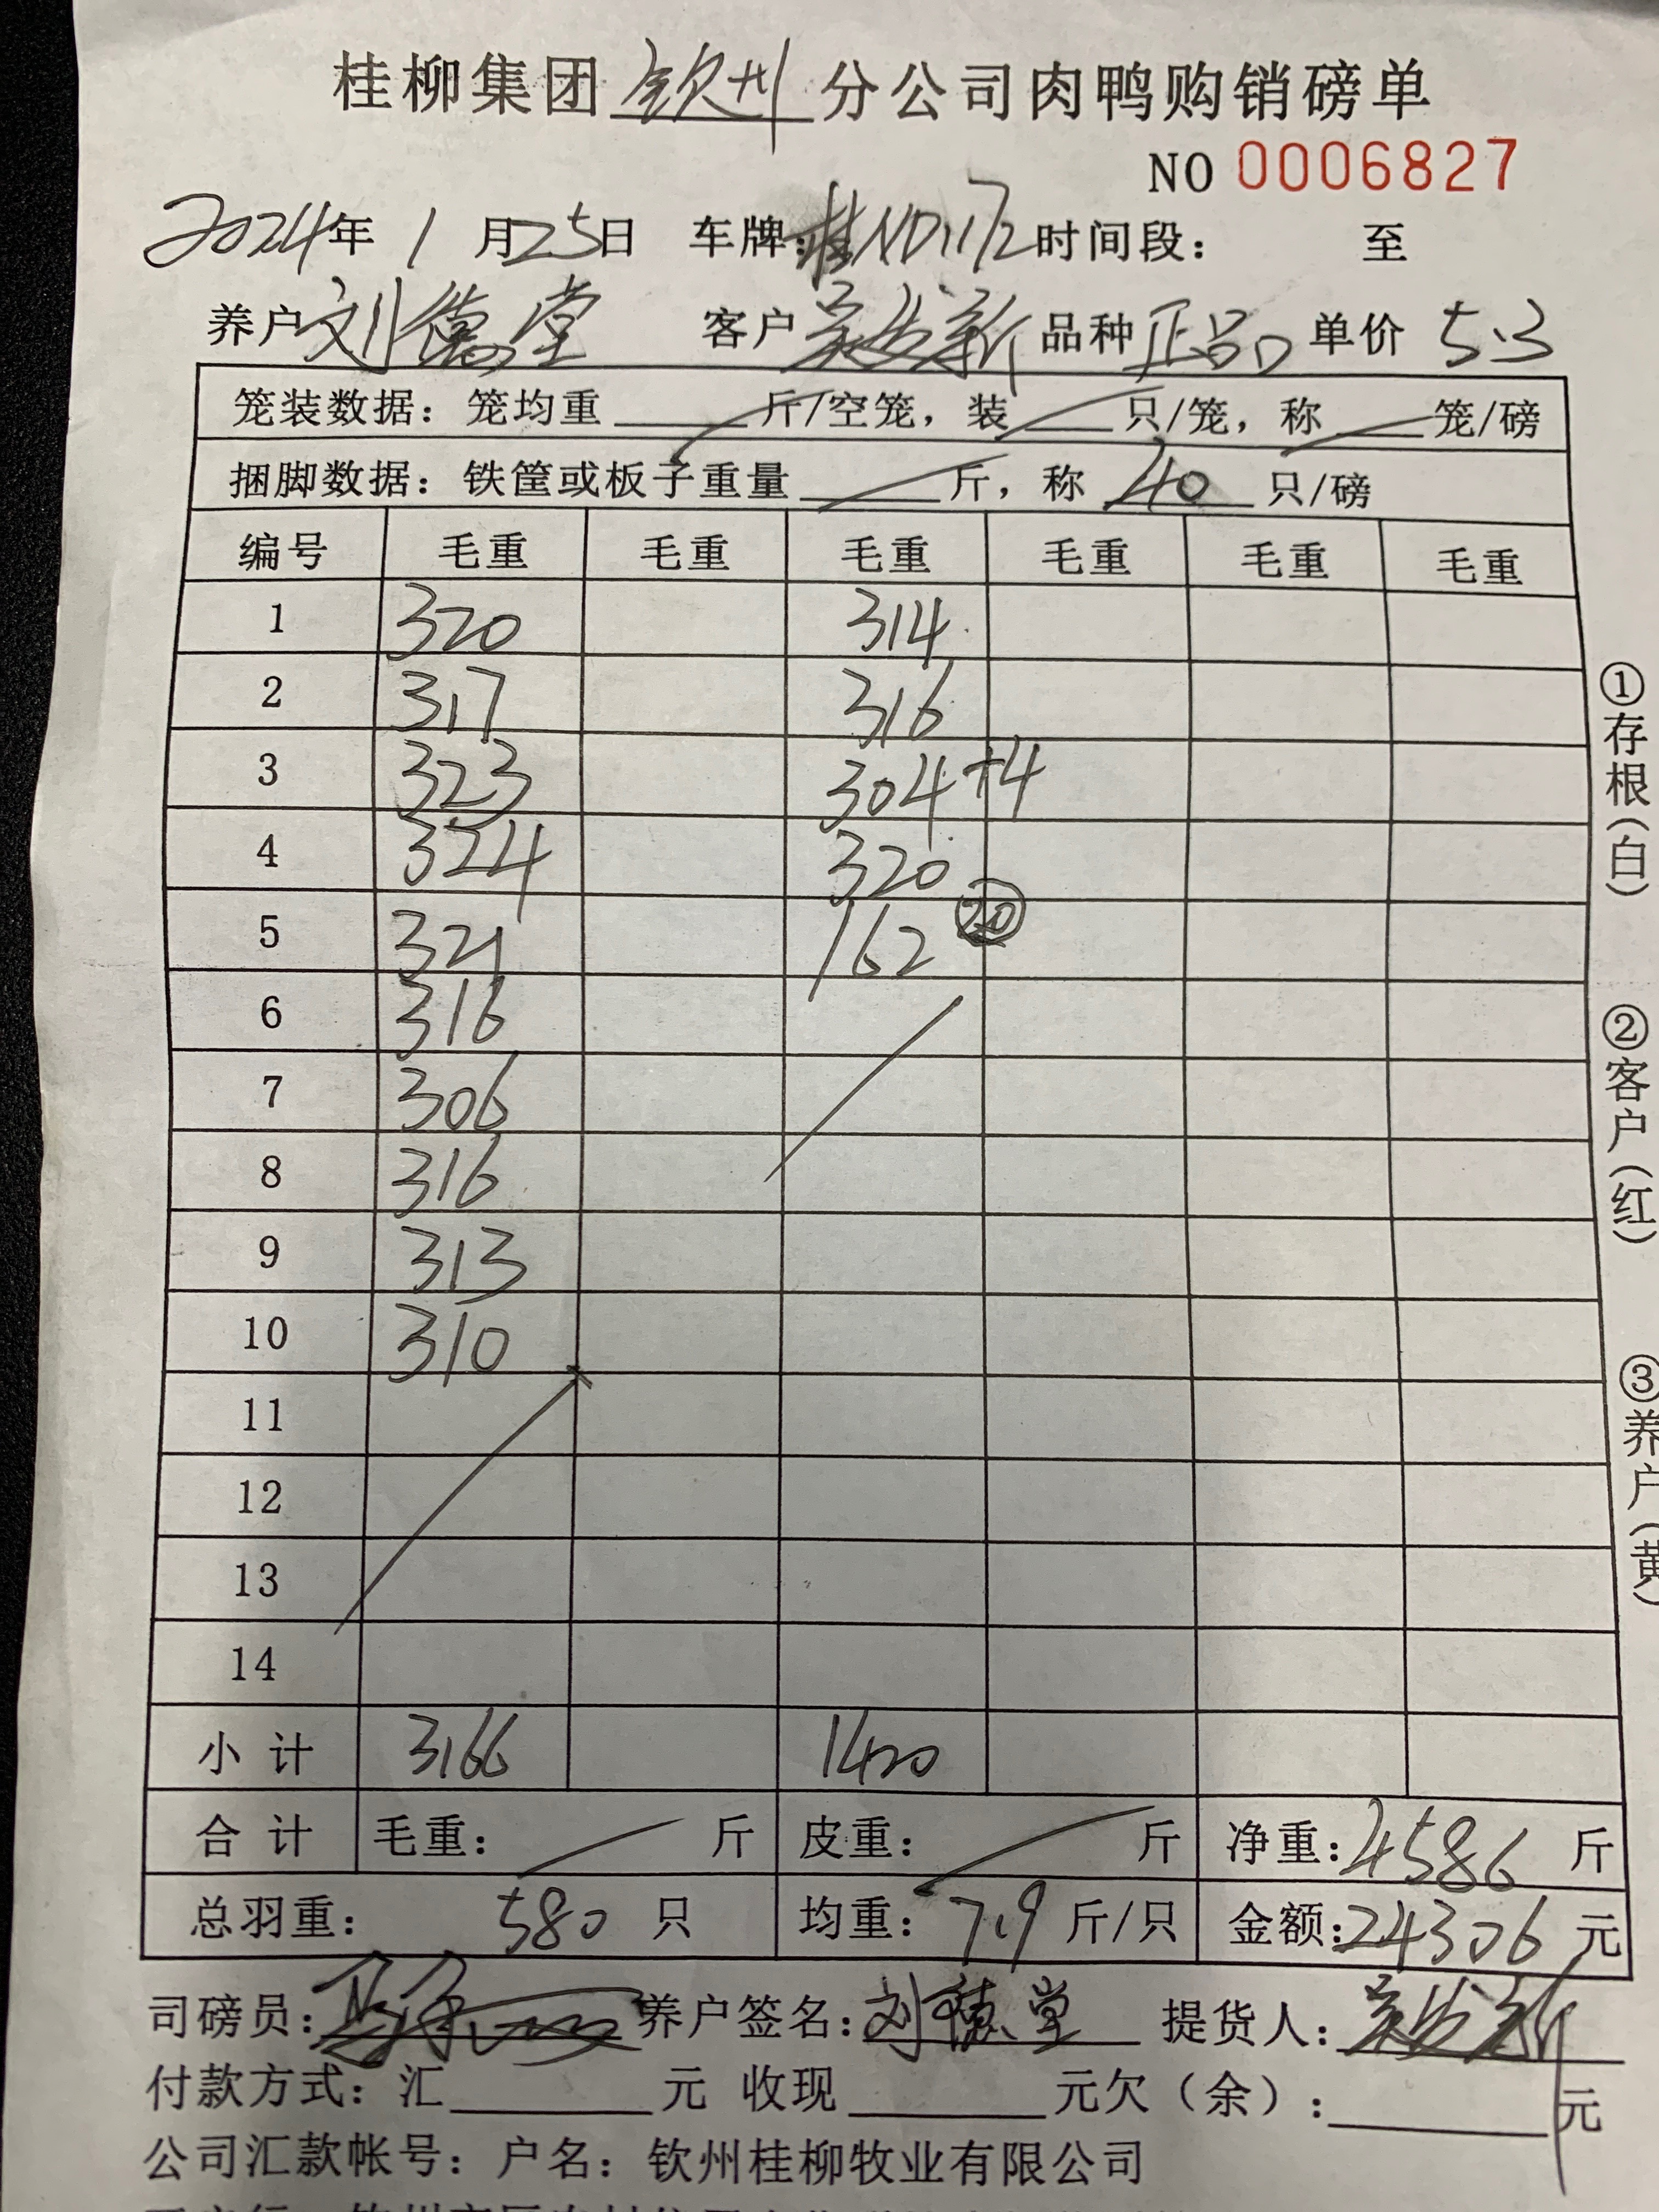 桂柳集团 钦州 分公司肉鸭购销磅单
NO 0006827
2024年 1 月25日 车牌:桂ND1172 时间段: 至
养户 刘德堂 客户 吴发新 品种 正品 单价 5.3
笼装数据: 笼均重 斤/空笼, 装 只/笼, 称 笼/磅
捆脚数据: 铁筐或板子重量 斤, 称 40 只/磅
编号 毛重 毛重 毛重 毛重 毛重 毛重
1 320 314
2 317 316
3 323 304+4
4 324 320
5 321 162 20
6 316
7 306
8 316
9 313
10 310
11
12
13
14
小 计 3166 1420
合 计 毛重: 斤 皮重: 斤 净重:4586 斤
总羽重: 580 只 均重: 7.9 斤/只 金额:24306 元
司磅员: 养户签名:刘德堂 提货人:吴发新
付款方式: 汇 元 收现 元欠(余): 元
公司汇款帐号: 户名: 钦州桂柳牧业有限公司
①存根(白)
②客户(红)
③养户(黄)